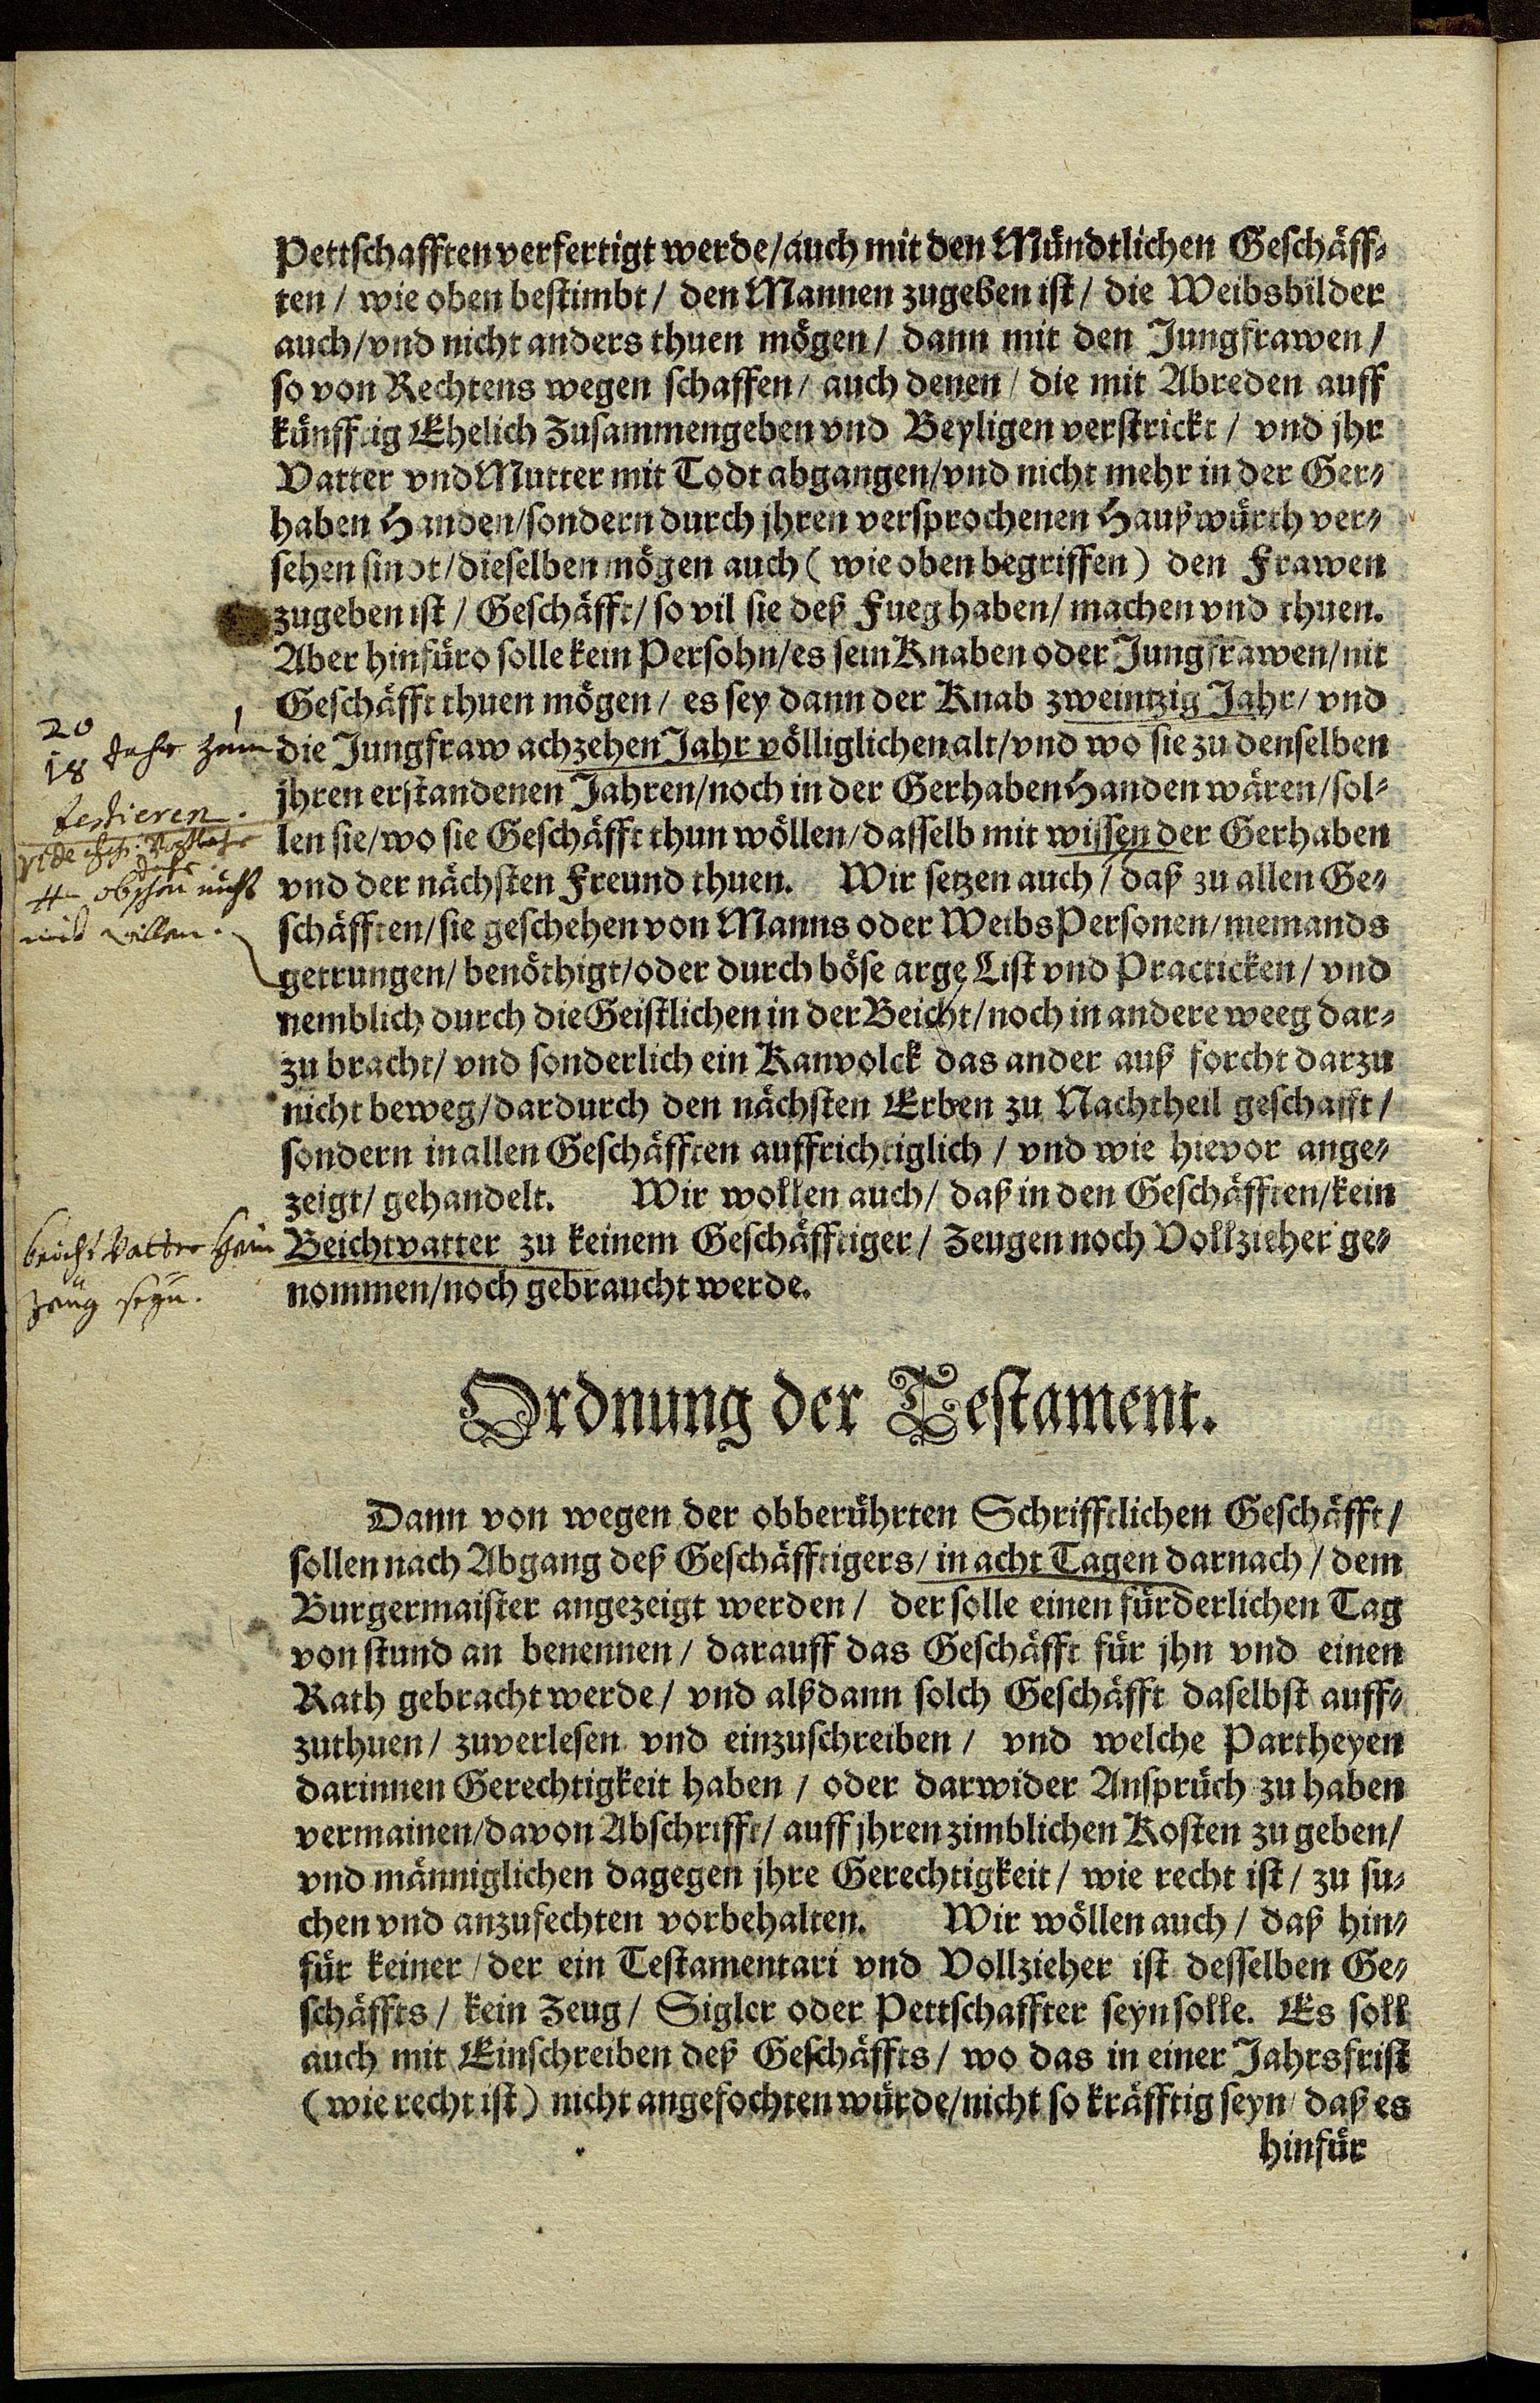 Pettschafften verfertigt werde/ auch mit den Mündtlichen Geschäff-
ten/ wie oben bestimbt/ den Mannen zugeben ist/ die Weibsbilder
auch/ vnd nicht anders thuen mögen/ dann mit den Jungfrawen/
so von Rechtens wegen schaffen/ auch denen/ die mit Abreden auff
künfftig Ehelich Zusammengeben vnd Beyligen verstrickt/ vnd jhr
Vatter vnd Mutter mit Todt abgangen/ vnd nicht mehr in der Ger-
haben Handen/ sondern durch jhren versprochenen Haußwürth ver-
sehen sindt/ dieselben mögen auch (wie oben begriffen) den Frawen
zugeben ist/ Geschäfft/ so vil sie deß Fueg haben/ machen vnd thuen.
Aber hinfüro solle kein Persohn/ es sein Knaben oder Jungfrawen/ nit
Geschäfft thuen mögen/ es sey dann der Knab zweintzig Jahr/ vnd
20
18 Jahr zum
die Jungfraw achzehen Jahr völliglichen alt/ vnd wo sie zu denselben
testieren.
jhren erstandenen Jahren/ noch in der Gerhaben Handen wären/ sol-
vide
len sie/ wo sie Geschäfft thun wöllen/ dasselb mit wissen der Gerhaben
obschon nicht
vnd der nächsten Freund thuen. Wir setzen auch/ daß zu allen Ge-
mit willen.
schäfften/ sie geschehen von Manns oder Weibs Personen/ niemands
getrungen/ benöthigt/ oder durch böse arge List vnd Practicken/ vnd
nemblich durch die Geistlichen in der Beicht/ noch in andere weeg dar-
zu bracht/ vnd sonderlich ein Kanvolck das ander auß forcht darzu
nicht beweg/ dardurch den nächsten Erben zu Nachtheil geschafft/
sondern in allen Geschäfften auffrichtiglich/ vnd wie hievor ange-
zeigt/ gehandelt. Wir wollen auch/ daß in den Geschäfften/ kein
beicht Vatter kein
Beichtvatter zu keinem Geschäfftiger/ Zeugen noch Vollzieher ge-
zeug seyn.
nommen/ noch gebraucht werde.
Ordnung der Testament.
Dann von wegen der obberührten Schrifftlichen Geschäfft/
sollen nach Abgang deß Geschäfftigers/ in acht Tagen darnach/ dem
Burgermaister angezeigt werden/ der solle einen fürderlichen Tag
von stund an benennen/ darauff das Geschäfft für jhn vnd einen
Rath gebracht werde/ vnd alßdann solch Geschäfft daselbst auff-
zuthuen/ zuverlesen vnd einzuschreiben/ vnd welche Partheyen
darinnen Gerechtigkeit haben/ oder darwider Ansprüch zu haben
vermainen/ davon Abschrifft/ auff jhren zimblichen Kosten zu geben/
vnd männiglichen dagegen jhre Gerechtigkeit/ wie recht ist/ zu su-
chen vnd anzufechten vorbehalten. Wir wöllen auch/ daß hin-
für keiner/ der ein Testamentari vnd Vollzieher ist desselben Ge-
schäffts/ kein Zeug/ Sigler oder Pettschaffter seyn solle. Es soll
auch mit Einschreiben deß Geschäffts/ wo das in einer Jahrsfrist
(wie recht ist) nicht angefochten würde/ nicht so kräfftig seyn/ daß es
hinfür